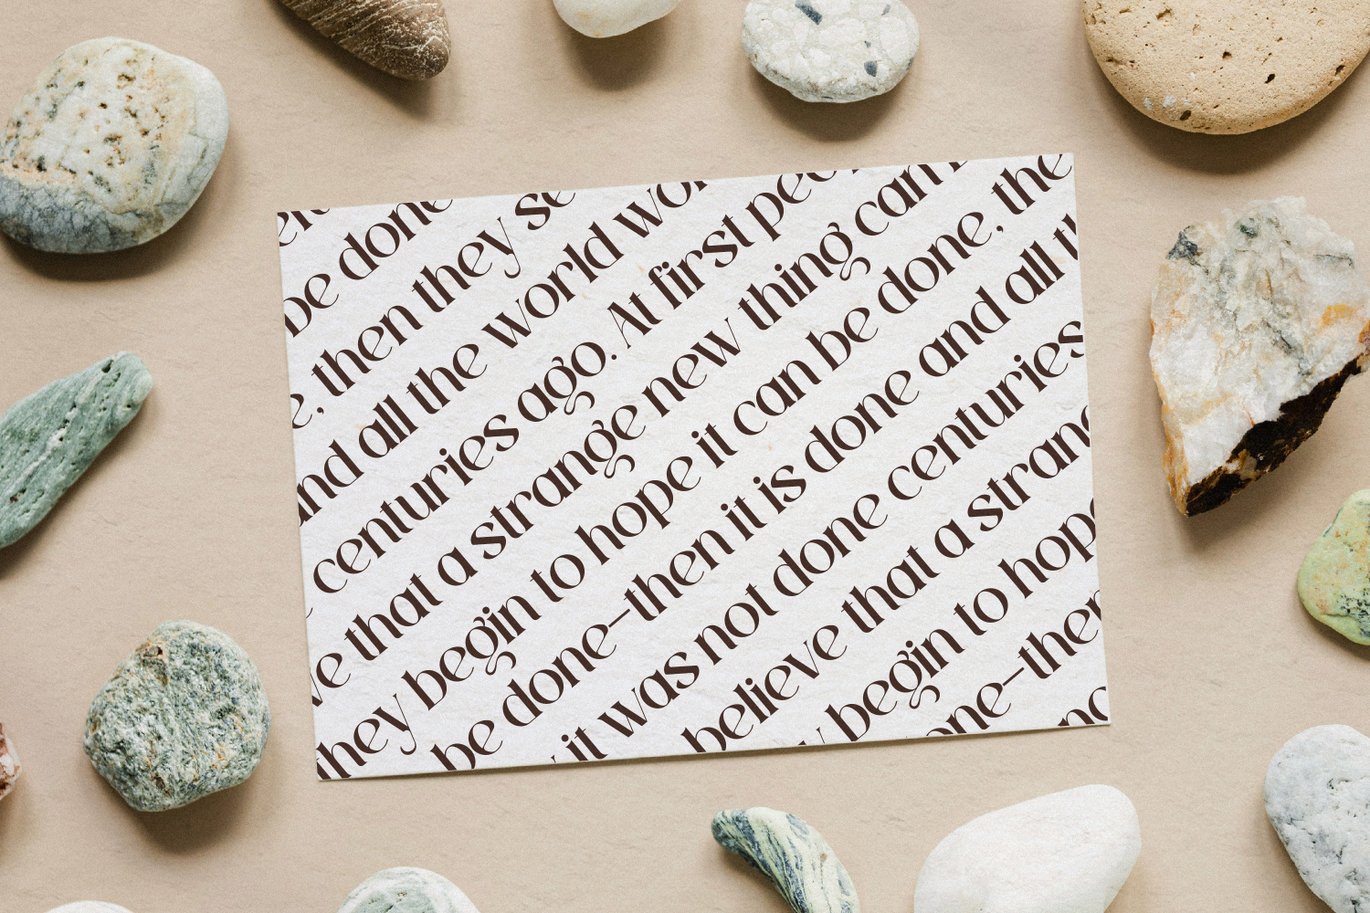 be done
e, then they se
and all the world wo
centuries ago. At first peo
ve that a strange new thing can
they begin to hope it can be done, the
be done—then it is done and all t
it was not done centuries
believe that a strang
y begin to hop
one—then
no